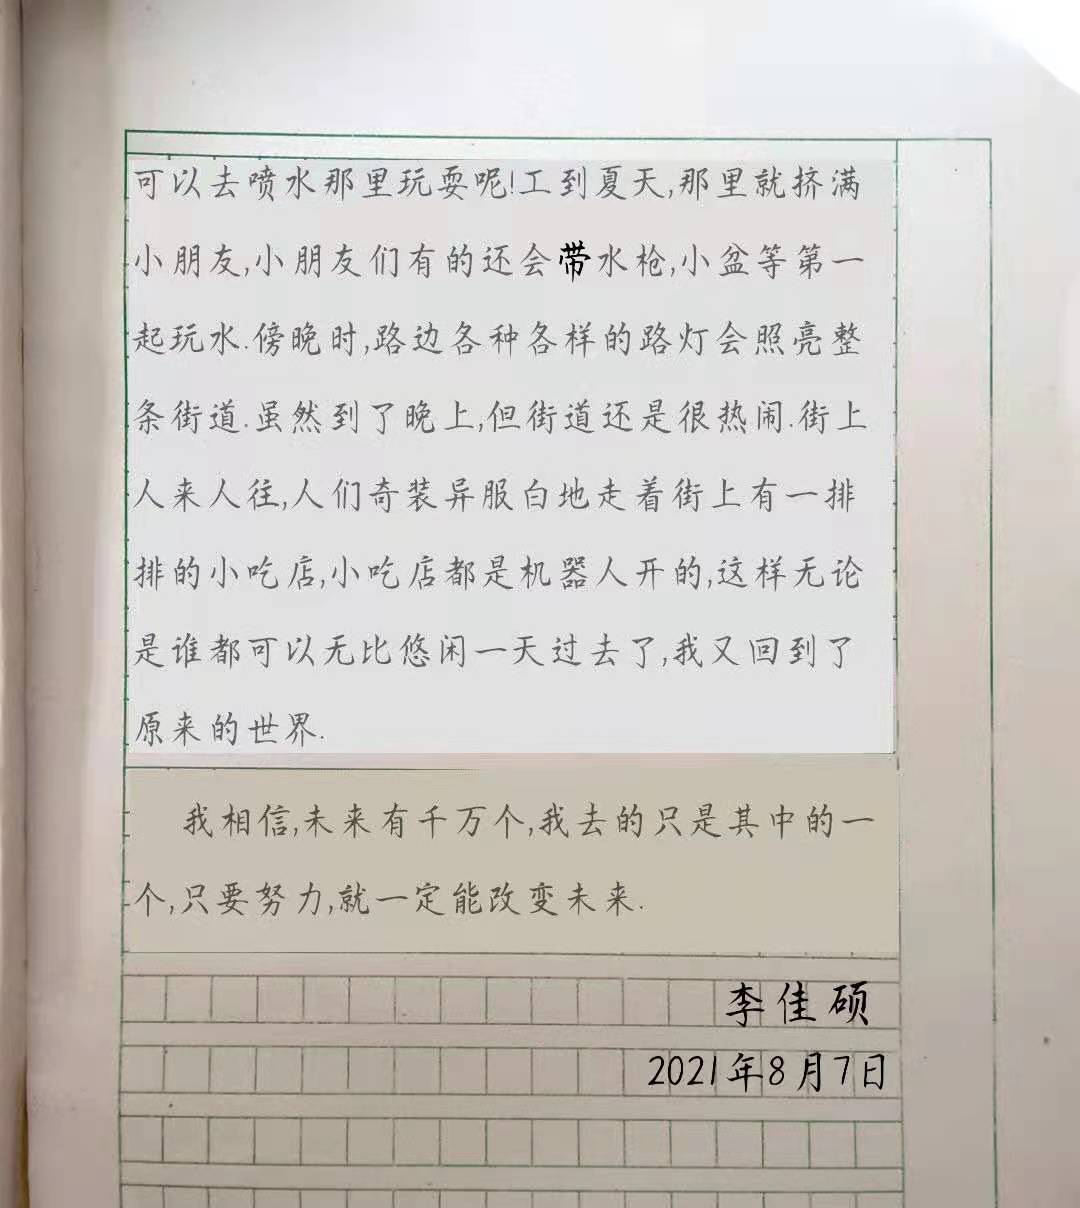 可以去喷水那里玩耍呢!工到夏天,那里就挤满
小朋友,小朋友们有的还会带水枪,小盆等第一
起玩水.傍晚时,路边各种各样的路灯会照亮整
条街道.虽然到了晚上,但街道还是很热闹.街上
人来人往,人们奇装异服白地走着街上有一排
排的小吃店,小吃店都是机器人开的,这样无论
是谁都可以无比悠闲一天过去了,我又回到了
原来的世界.
我相信,未来有千万个,我去的只是其中的一
个,只要努力,就一定能改变未来.
李佳硕
2021年8月7日